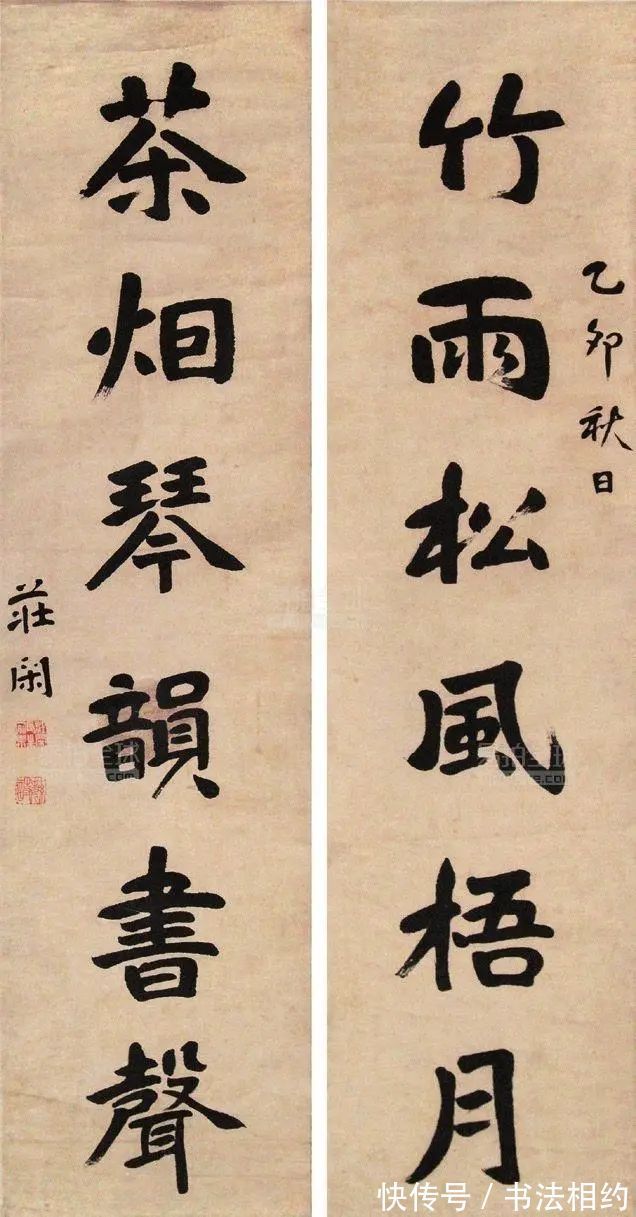 乙卯秋日
竹雨松風梧月
茶烟琴韻書聲
莊閑
快传号 / 书法相约